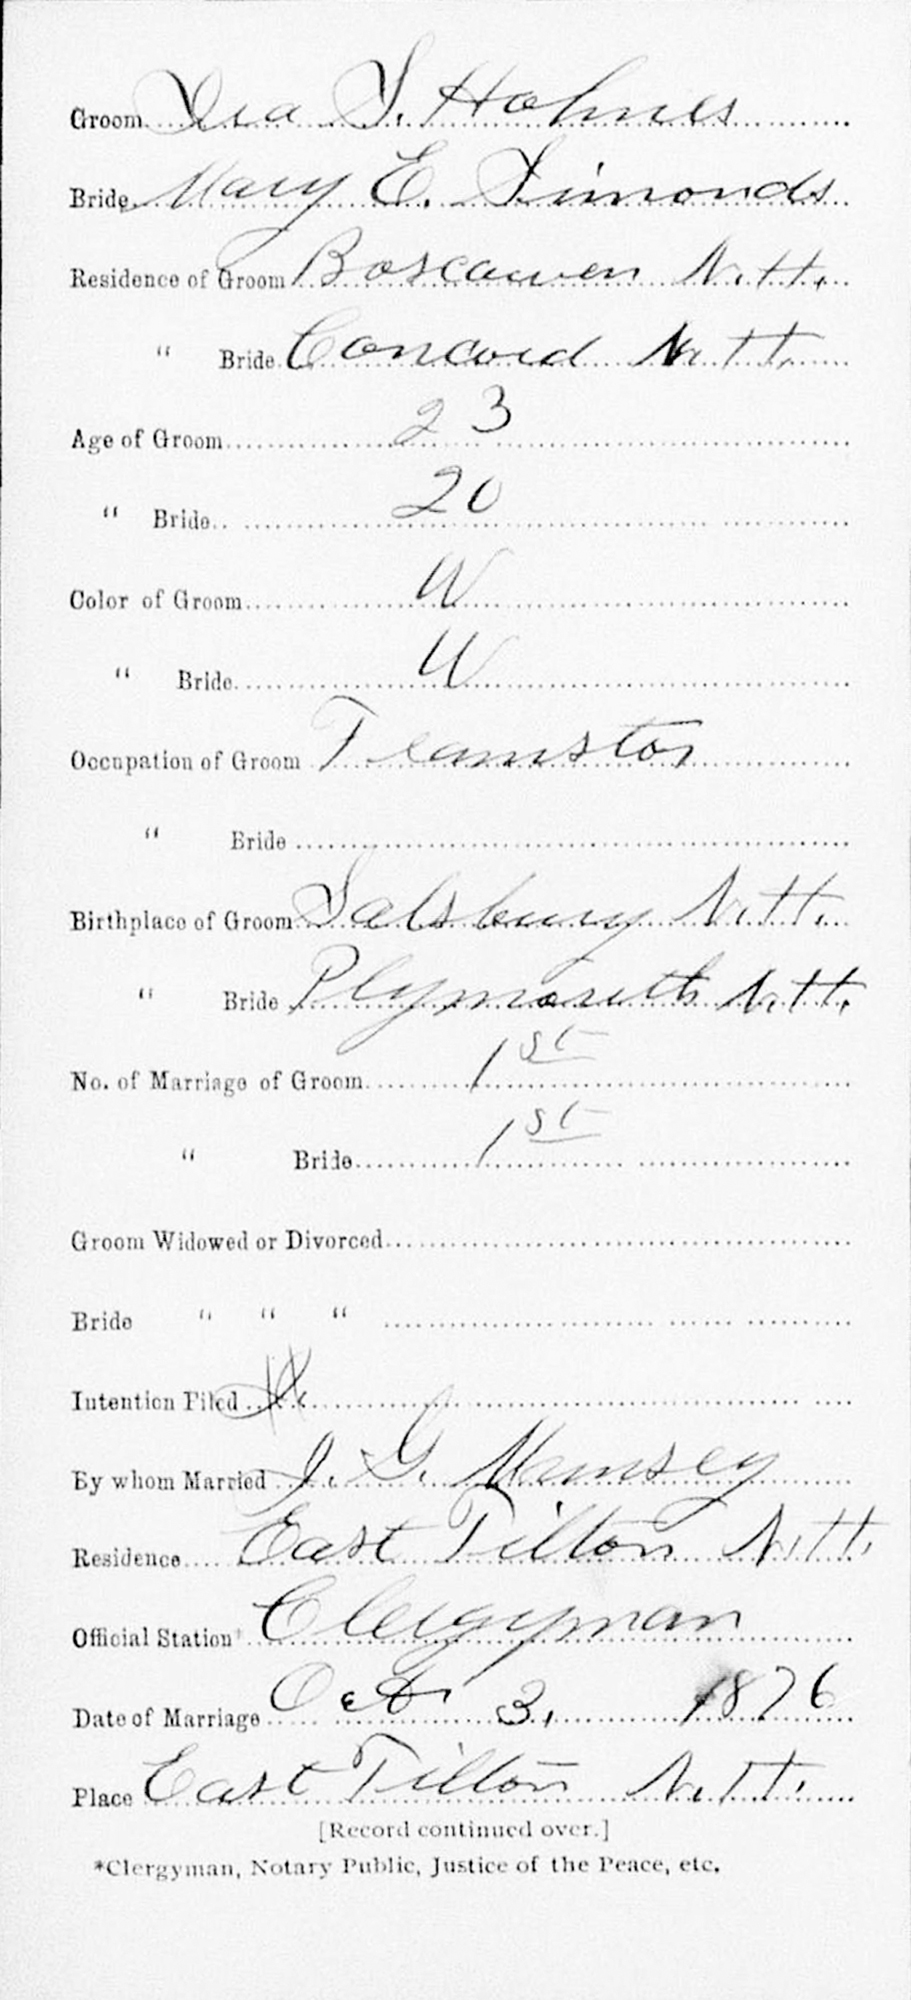 Groom Ira S. Holmes
Bride Mary E. Simonds
Residence of Groom Boscawen N.H.
" Bride Concord N.H.
Age of Groom 23
" Bride 20
Color of Groom W
" Bride W
Occupation of Groom Teamstor
" Bride
Birthplace of Groom Salsbury N.H.
" Bride Plymouth N.H.
No. of Marriage of Groom 1st
" Bride 1st
Groom Widowed or Divorced
Bride " " "
Intention Filed
By whom Married J. G. Munsey
Residence East Tilton N.H.
Official Station* Clergyman
Date of Marriage Oct 3, 1876
Place East Tilton N.H.
[Record continued over.]
*Clergyman, Notary Public, Justice of the Peace, etc.